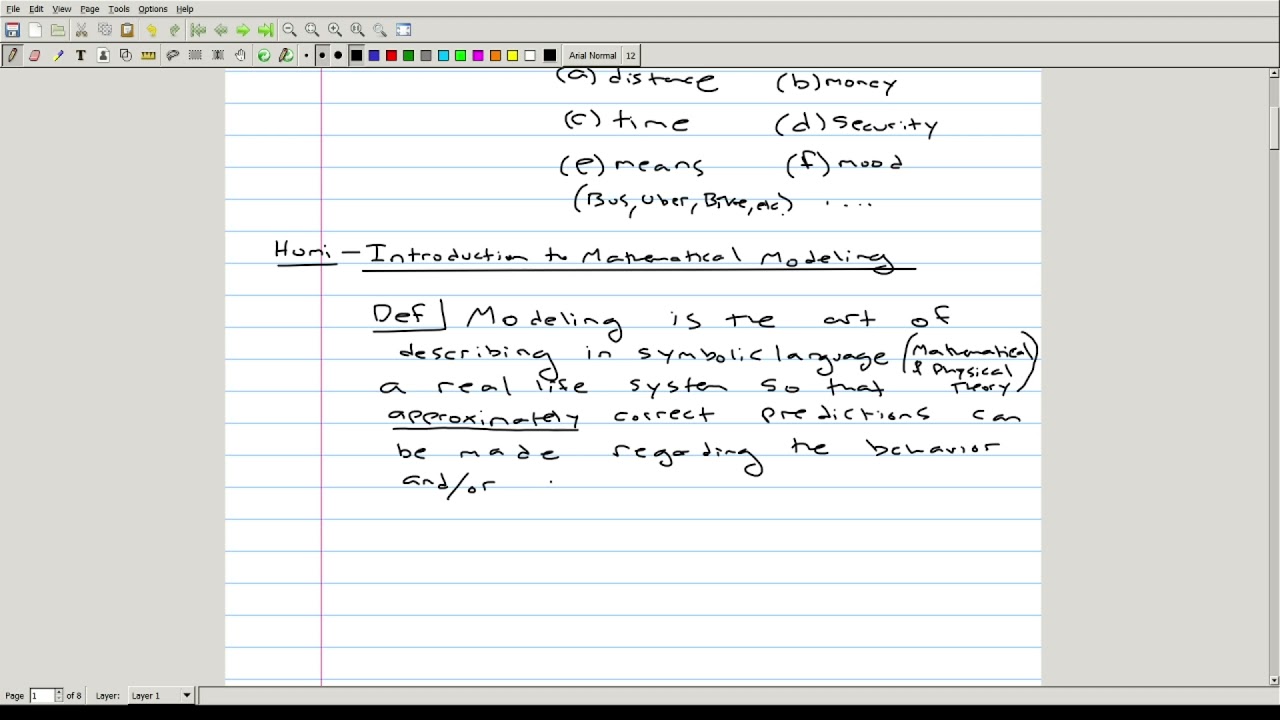 File Edit View Page Tools Options Help
Arial Normal 12
(a) distance (b) money
(c) time (d) security
(e) means (f) mood
(Bus, Uber, Bike, etc.) ....
Humi - Introduction to Mathematical Modeling
Def Modeling is the art of
describing in symbolic language (Mathematical
& Physical
Theory)
a real life system so that
approximately correct predictions can
be made regarding the behavior
and/or
Page 1 of 8 Layer: Layer 1